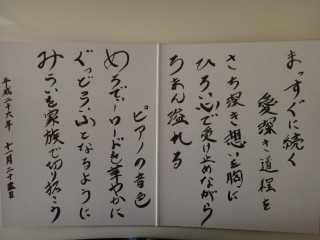 まっすぐに続く
愛深き道程を
さち深き想いを胸に
ひろい心で受け止めながら
ろまん溢れる
ピアノの音色
めろでぃーロードを華やかに
ぐっどらいふとなるように
みらいを家族で切り拓こう
平成二十六年 十一月二十